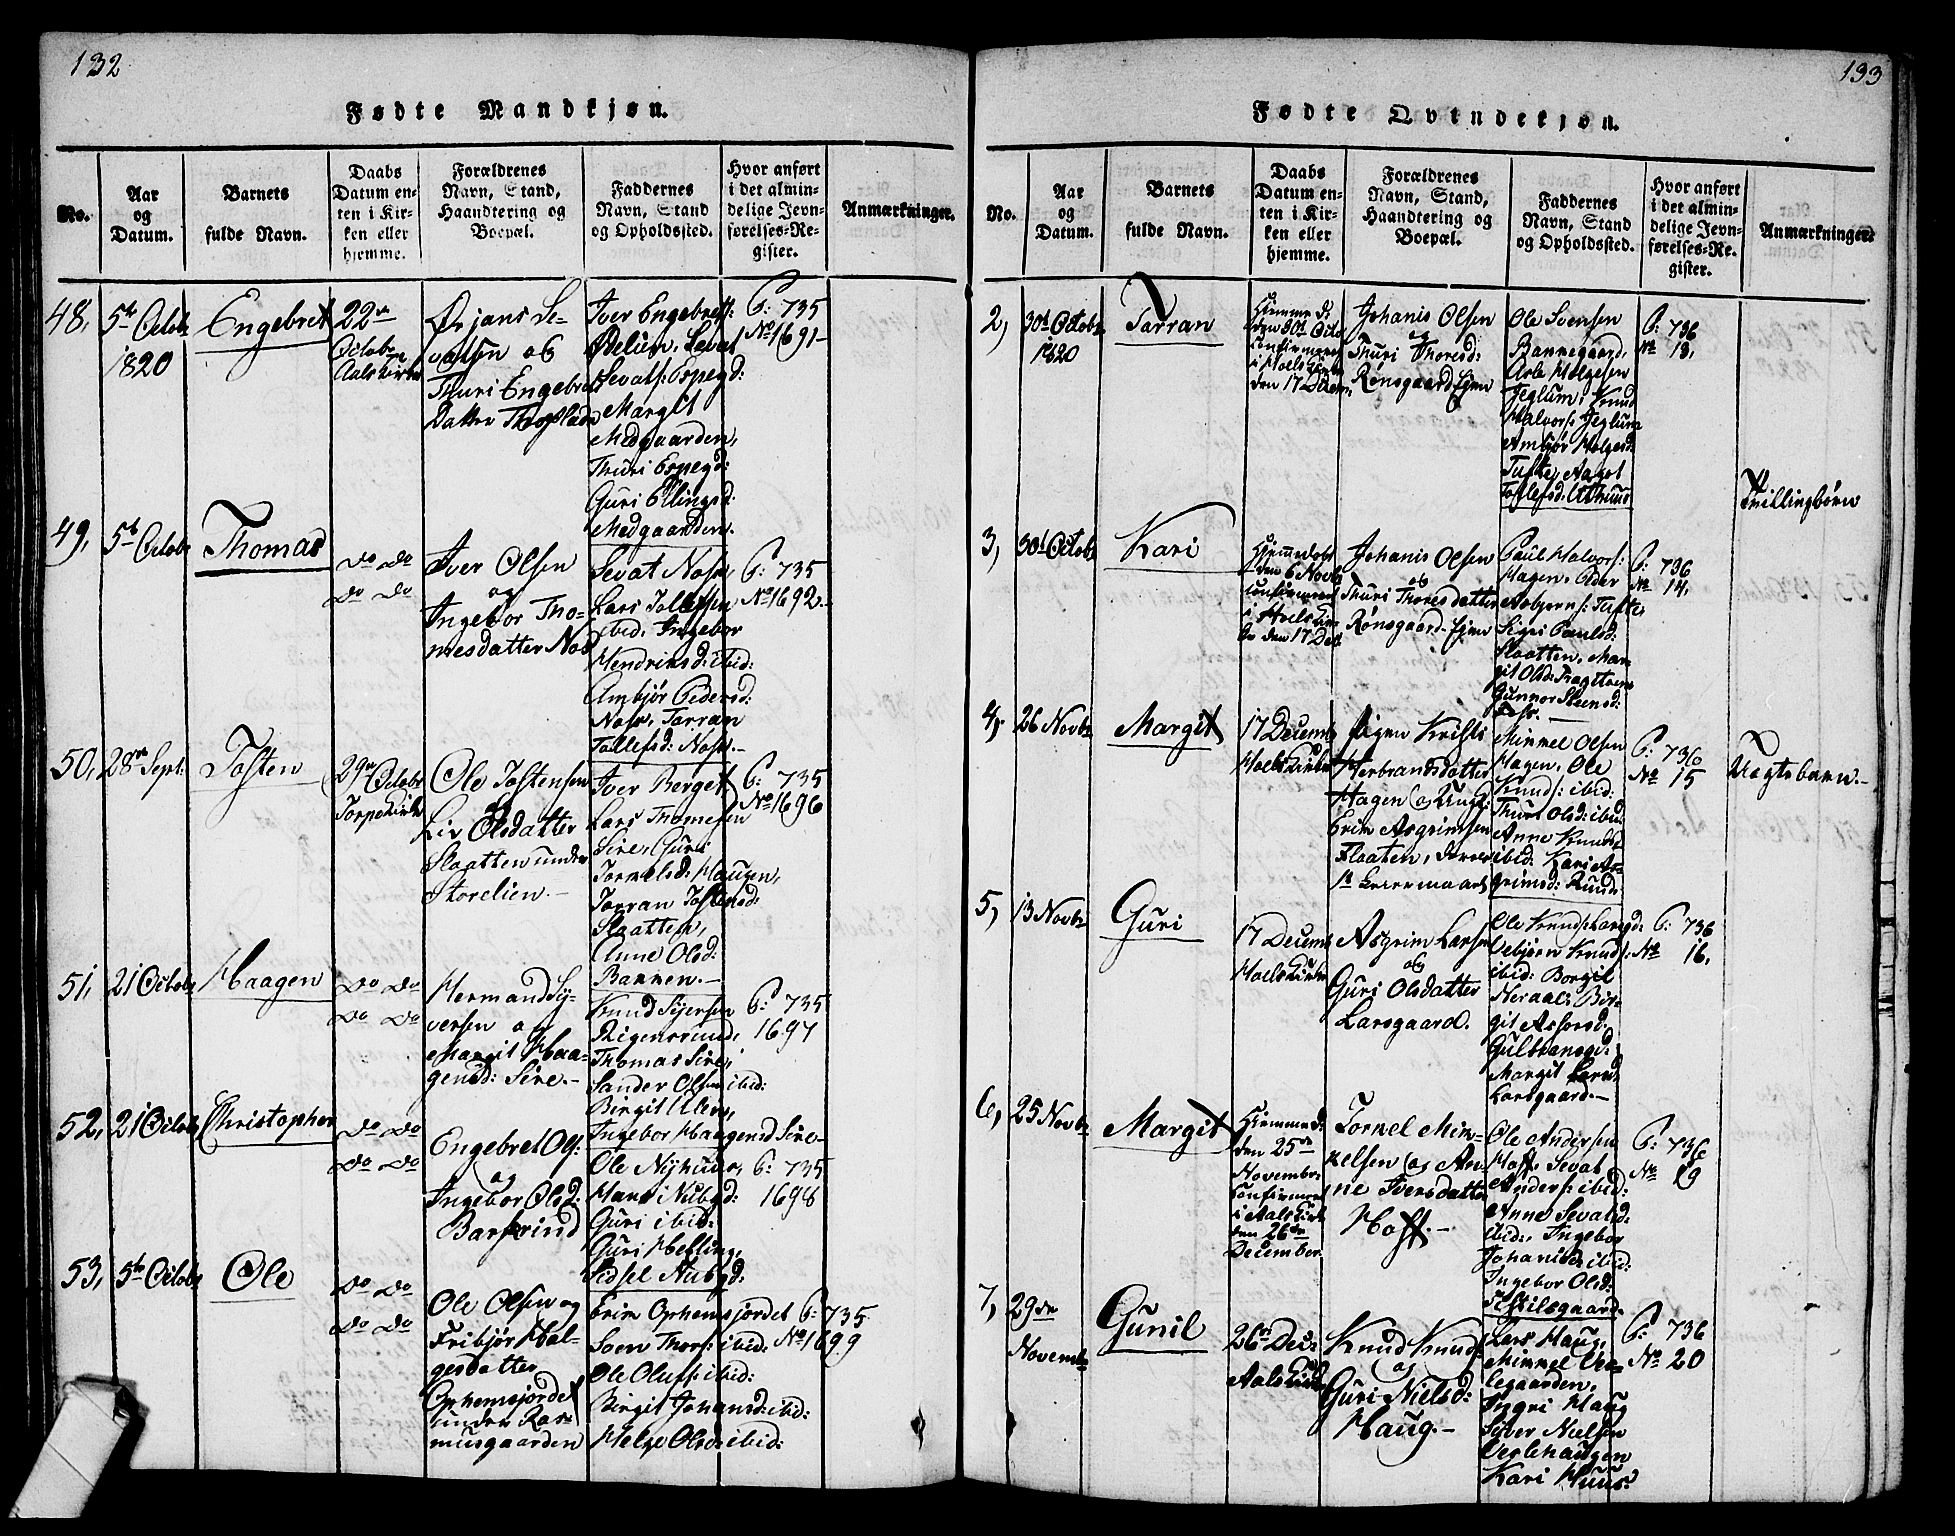 132
Fødte Mandkjøn.
No.
Aar
og
Datum.
Barnets
fulde Navn.
Daabs
Datum en-
ten i Kir-
ken eller
hjemme.
Forældrenes
Navn, Stand,
Haandtering og
Boepæl.
Faddernes
Navn, Stand
og Opholdssted.
Hvor anført
i det almin-
delige Jevn-
førelses-Re-
gister.
Anmærkninger.
48,
5te Octobr
1820
Engebret
22de
Octobr
Aals Kirke
Ørjans Se-
vatsen og
Thuri Engebrets
Datter
Iver Engebrett:
Ødelien, Sevat
Sevats: Espegd:
Margit
Medgaarden,
Thuri Espegd:
Guri Ellingsd:
Medgaarden.
P: 735
No 1691-
49,
5te Octobr
Thomas
Do Do
Do Do
Iver Olsen
og
Ingebor Tho-
mesdatter Nos
Sevat Nos,
Lars Tollefsen
ibid, Ingebor
Hendriksd: ibid:
Ambjør Pedersd:
Nos, Torran
Tollefsd: Nos.-
P: 735
No 1692-
50,
28de Sept:
Tosten
29de Octobr
Torpe Kirke
Ole Tostensen
og
Liv Olsdatter
Slaatten under
Storelien.-
Iver Berget
Lars Thomesen
Sire, Guri
Tormelsd: Haugen,
Torran Tostensd:
Slaatten,
Anne Olsd:
Bakken.-
P: 735
No 1696
51,
21 Octobr
Haagen
Do Do
Do Do
Herman Sy-
versen og
Margit Haa-
gensd: Sire.-
Knud Sjersen
Thomas Sire,
Sander Olsen ibid:
Birgit
Ingebor Haagensd Sire-
P: 735
1697
52,
21 Octobr
Christopher
Do Do
Do Do
Engebret Ols:
og
Ingebor Olsd:
Ole Nyhuus,
Hans i Nubgd:
Guri ibid:
Guri Helling,
Sidsel Nubgd:
P: 735
1698
53,
5te Octobr
Ole
Do Do
Do Do
Ole Olsen og
Fribjør Hel-
gesdatter
Ophemsjordet
under Ras-
musgaarden
Erik Ophemsjordet
Soen Thors: ibid:
Ole Olufs: ibid:
Birgit Johansd: ibid:
Helge Olsd: ibid:
P: 735
No 1699
133
Fødte Qvindekjøn.
No.
Aar
og
Datum.
Barnets
fulde Navn.
Daabs
Datum en-
ten i Kir-
ken eller
hjemme.
Forældrenes
Navn, Stand,
Haandtering og
Boepæl.
Faddernes
Navn, Stand
og Opholdssted.
Hvor anført
i det almin-
delige Jevn-
førelses-Re-
gister.
Anmærkninger.
2,
30te Octobr
1820
Torran
Hiemme d:
den 30te Octo
confirmeret
i Hoels Kirke
den 17 Decem
Johanis Olsen
og
Thuri Thoresd:
Rønsgaard Ejen
Ole Svensen
Bakkegaard,
Asle Helgesen
Jeglum, Knud
Halvors: Jeglum
Ambjør Helgesd:
Tufte, Aagot
Tollefsd:
P: 736
No 13,
Tvillingbørn
3,
30te Octobr
Kari
Hjemmedøbt
den 6 Novbr
confirmeret
i Hoels Kir
ke den 17 Dec
Johanis Olsen
og
Thuri Thoresdatter
Rønsgaard Ejen
Paul Halvors:
Hagen, Peder
Asbjørns: Tufte,
Sigri Paulsd:
Slaatten, Mar-
git Olsd:
Gunnor Steensd:
P: 736
No 14,
4,
26 Novbr
Margit
17 Decemb
Hoels Kirke
Pigen Kristi
Herbrandsdatter
Hagen og Ungk:
Erik Asgrimsen
Flaaten,
Mikkel Olsen
Hagen, Ole
Knuds: ibid:
Thuri Olsd: ibid
Anne Knudsd:
ibid: Kari As-
grimsd: Ruud.
P: 736
No 15
Uægtebarn.-
5,
13 Novbr
Guri
17 Decemb
Hoels Kirke
Asgrim Larsen
og
Guri Olsdatter
Larsgaard.
Ole Knuds: Larsgd:
Vebjørn Knuds:
ibid: Borgil
Neraal, Bir-
git Asfersd:
Gulbransgd:
Margit Larsd:
Larsgaard.-
P: 736
No 16,
6,
25 Novbr
Margit
Hiemme d:
den 25de
November,
confirmeret
i Aals Kirke
den 26de
December.
Torkel Mik-
kelsen og An-
ne Iversdatter
Hoft.-
Ole Andersen
Hoft, Sevat
Anders: ibid:
Anne Sevatsd:
ibid:, Ingebor
Johanisd: ibid:
Ingebor Olsd:
Eskilsgaard.
P: 736
No 19
7,
29de
Novembr
Gunil
26de Dec:
Aals Kirke
Knud Knuds:
og
Guri Nielsd:
Haug.-
Lars Haug,
Mikkel Ve-
legaarden,
Ingri Haug
Siver Nielsen
Veslehaugen
Kari Huus.
P: 736
No 20